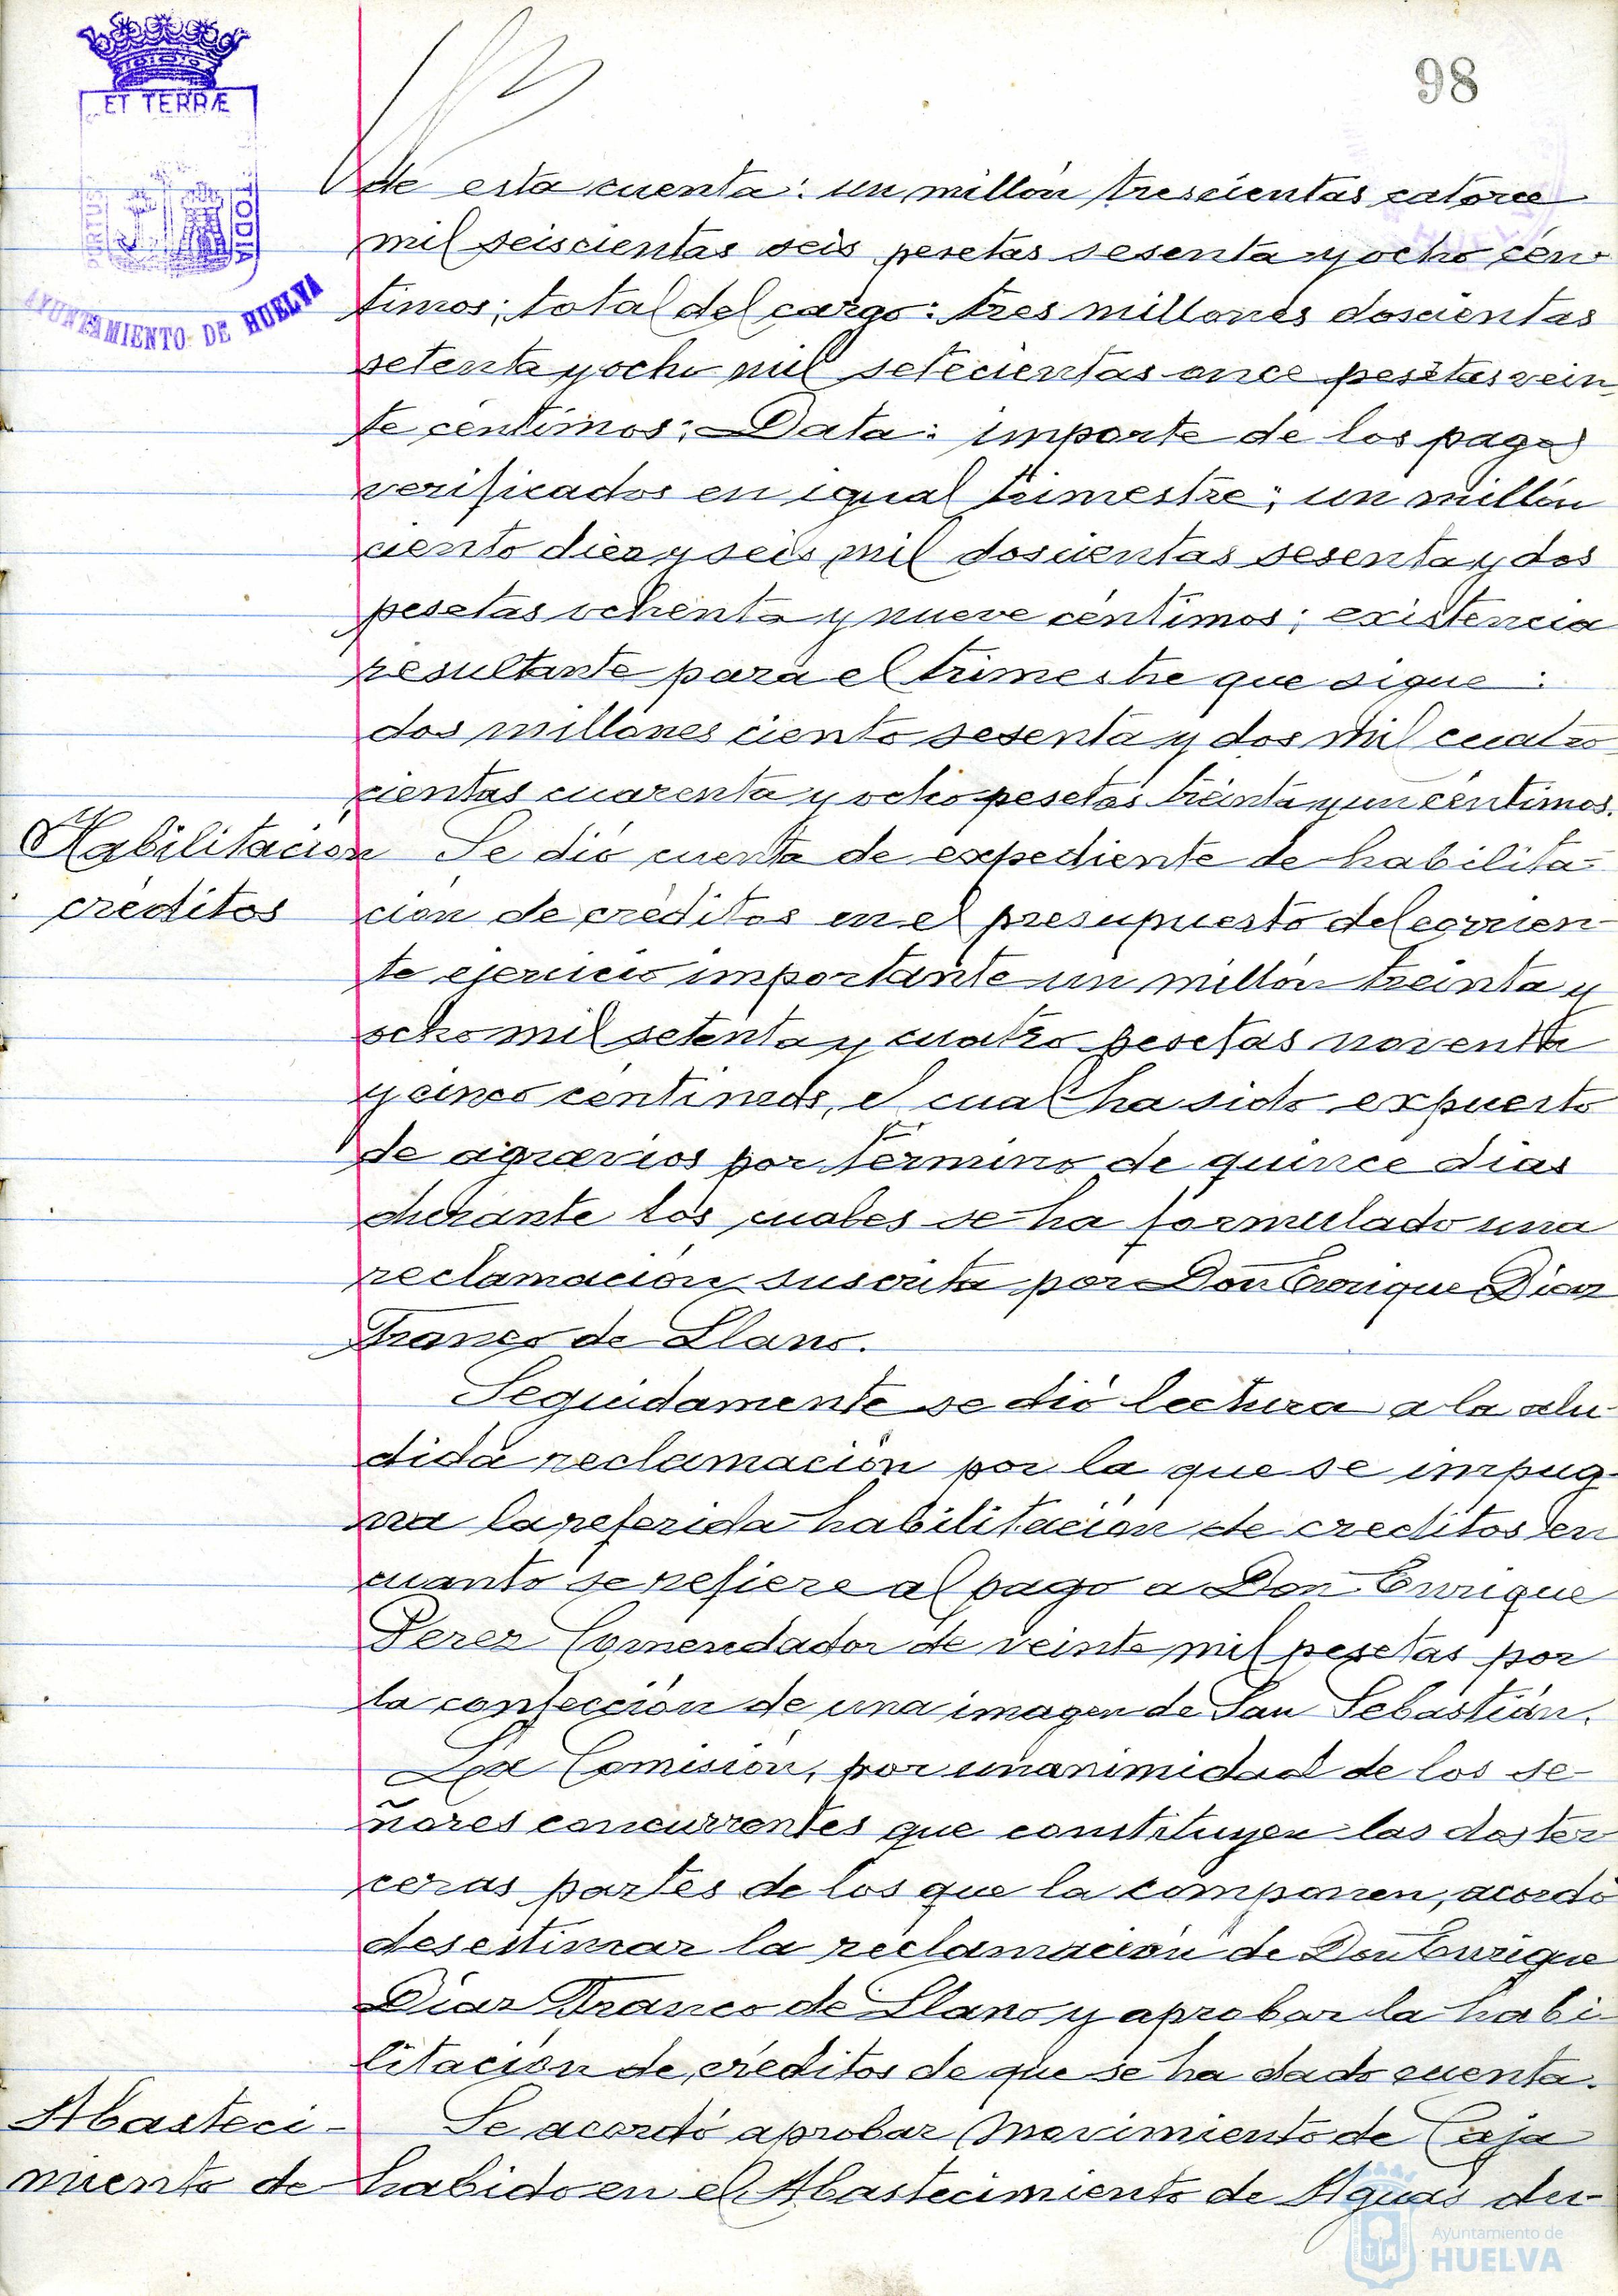 98
ET TERRÆ
PORTUS
TODIA
AYUNTAMIENTO DE HUELVA
de esta cuenta: un millón trescientas catorce
mil seiscientas seis pesetas sesenta y ocho cén-
timos; total del cargo: tres millones doscientas
setenta y ocho mil setecientas once pesetas vein-
te céntimos; Data: importe de los pagos
verificados en igual trimestre; un millón
ciento diez y seis mil doscientas sesenta y dos
pesetas ochenta y nueve céntimos; existencia
resultante para el trimestre que sigue:
dos millones ciento sesenta y dos mil cuatro
cientas cuarenta y ocho pesetas treinta y un céntimos.
Habilitación Se dió cuenta de expediente de habilita-
créditos ción de créditos en el presupuesto del corrien-
te ejercicio importante un millón treinta y
ocho mil setenta y cuatro pesetas noventa
y cinco céntimos, el cual ha sido expuesto
de agravios por término de quince dias
durante los cuales se ha formulado una
reclamación suscrita por Don Enrique Diaz
Franco de Llano.
Seguidamente se dió lectura a la alu-
dida reclamación por la que se impug-
na la referida habilitación de creditos en
cuanto se refiere al pago a Don Enrique
Perez Comendador de veinte mil pesetas por
la confección de una imagen de San Sebastián.
La Comisión, por unanimidad de los se-
ñores concurrentes que constituyen las dos ter
ceras partes de los que la componen, acordó
desestimar la reclamación de Don Enrique
Diaz Franco de Llano y aprobar la habi-
litación de créditos de que se ha dado cuenta.
Abasteci- Se acordó aprobar movimiento de Caja
miento de habido en el Abastecimiento de Aguas du-
Ayuntamiento de
HUELVA